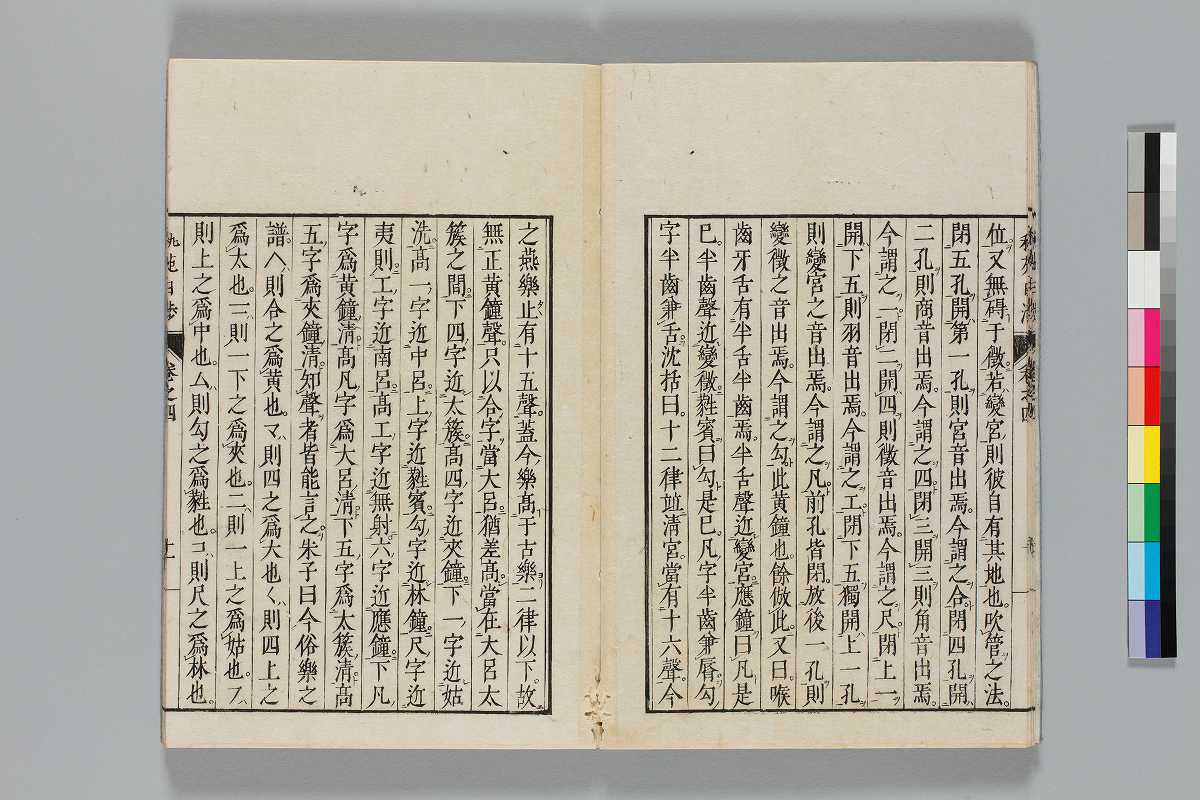 位又無碍于徵若變宮則彼自有其地也吹管之法
閉五孔開第一孔則宮音出焉今謂之合閉四孔開
二孔則商音出焉今謂之四閉三開三則角音出焉
今謂之一閉二開四則徵音出焉今謂之尺閉上一
開下五則羽音出焉今謂之工閉下五獨開上一孔
則變宮之音出焉今謂之凡前孔皆閉放後一孔則
變徵之音出焉今謂之勾此黄鐘也餘倣此又曰喉
齒牙舌有半舌半齒焉半舌聲近變宮應鐘曰凡是
巳半齒聲近變徵蕤賓曰勾是巳凡字半齒兼脣勾
字半齒兼舌沈括曰十二律竝淸宮當有十六聲今
之燕樂止有十五聲蓋今樂髙于古樂二律以下故
無正黄鐘聲只以合字當大呂猶差髙當在大呂太
簇之間下四字近太簇髙四字近夾鐘下一字近姑
洗髙一字近中呂上字近蕤賓勾字近林鐘尺字近
夷則工字近南呂髙工字近無射六字近應鐘下凡
字爲黄鐘淸髙凡字爲大呂淸下五字爲太簇淸髙
五字爲夾鐘淸知聲者皆能言之朱子曰今俗樂之
譜㇏則合之爲黄也マ則四之爲大也く則四上之
爲太也二則一下之爲夾也二則一上之爲姑也フ
則上之爲中也ム則勾之爲蕤也コ則尺之爲林也
卷之四
十一